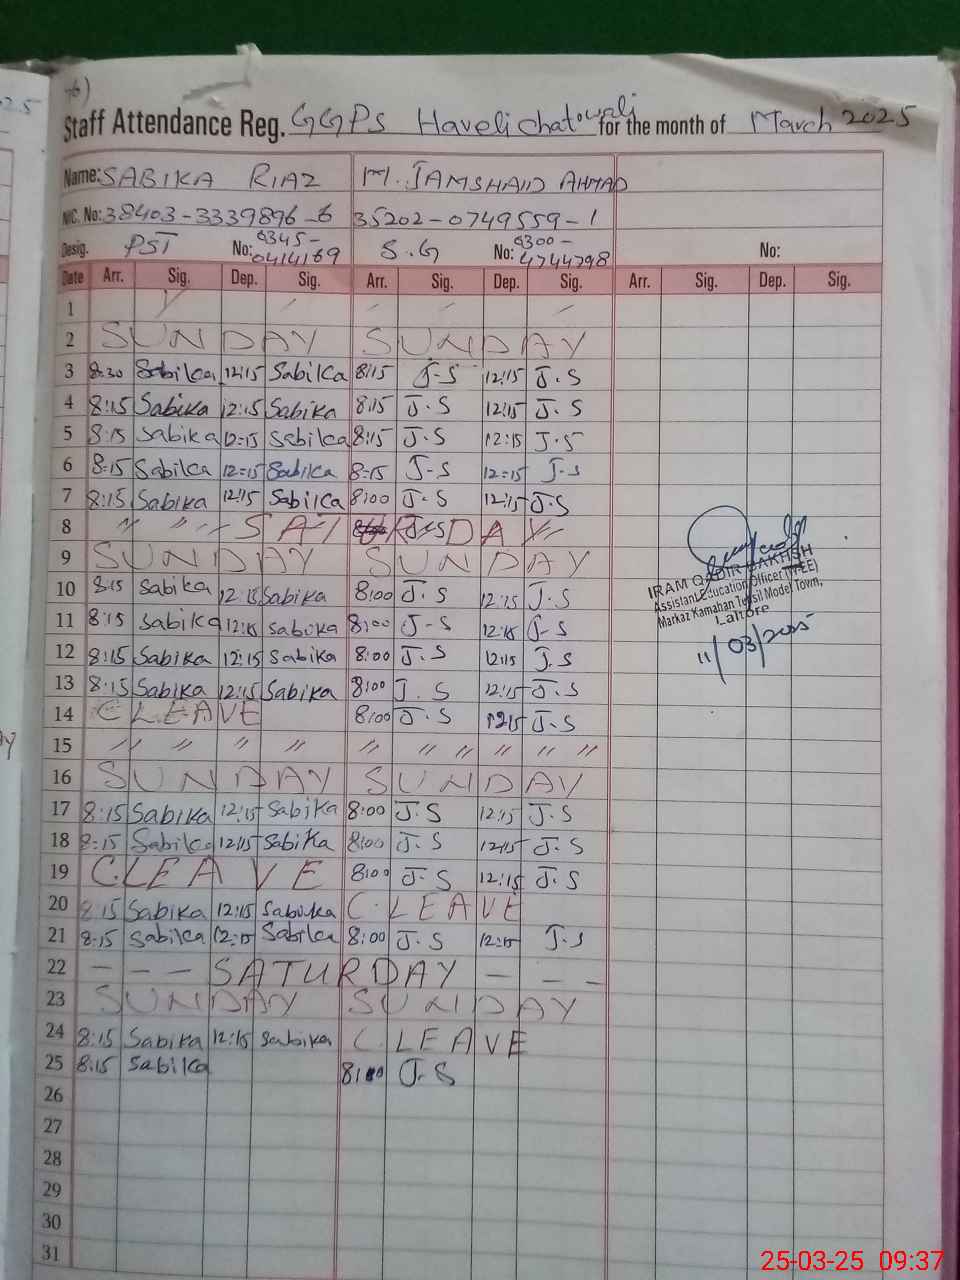 Staff Attendance Reg. GGPS Haveli chatowali for the month of March 2025
Name: SABIKA RIAZ M. JAMSHAID AHMAD
NIC. No: 38403-3339896-6 35202-0749559-1
Desig. PST No: 0345-0414169 S.G No: 0300-4744798 No:
Date Arr. Sig. Dep. Sig. Arr. Sig. Dep. Sig. Arr. Sig. Dep. Sig.
1
2 SUNDAY SUNDAY
3 8:30 Sabika 12:15 Sabika 8:15 J-S 12:15 J.S
4 8:15 Sabika 12:15 Sabika 8:15 J.S 12:15 J.S
5 8:15 Sabika 12:15 Sabika 8:15 J.S 12:15 J.S
6 8:15 Sabika 12:15 Sabika 8:15 J-S 12:15 J-S
7 8:15 Sabika 12:15 Sabika 8:00 J.S 12:15 J.S
8 " " SATURDAY "
9 SUNDAY SUNDAY
10 8:15 Sabika 12:15 Sabika 8:00 J.S 12:15 J.S
11 8:15 Sabika 12:15 Sabika 8:00 J-S 12:15 J-S
12 8:15 Sabika 12:15 Sabika 8:00 J.S 12:15 J.S
13 8:15 Sabika 12:15 Sabika 8:00 J.S 12:15 J.S
14 C LEAVE 8:00 J.S 12:15 J.S
15 " " " " " " " " " "
16 SUNDAY SUNDAY
17 8:15 Sabika 12:15 Sabika 8:00 J.S 12:15 J.S
18 8:15 Sabika 12:15 Sabika 8:00 J.S 12:15 J.S
19 C.LEAVE 8:00 J.S 12:15 J.S
20 8:15 Sabika 12:15 Sabika C.LEAVE
21 8:15 Sabika 12:15 Sabika 8:00 J.S 12:15 J.S
22 - - - SATURDAY - - -
23 SUNDAY SUNDAY
24 8:15 Sabika 12:15 Sabika C.LEAVE
25 8:15 Sabika 8:00 J-S
26
27
28
29
30
31
IRAM QADIR BAKHSH
Assistant Education Officer (W-EE)
Markaz Kamahan Tehsil Model Town,
Lahore
11/03/2025
25-03-25 09:37